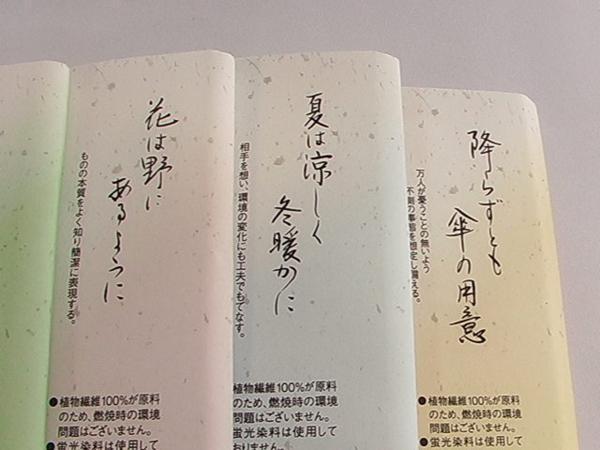 花は野に
あるように
ものの本質をよく知り簡潔に表現する。
●植物繊維100%が原料
のため、燃焼時の環境
問題はございません。
●蛍光染料は使用して
夏は涼しく
冬暖かに
相手を想い、環境の変化にも工夫でもてなす。
植物繊維100%が原料
のため、燃焼時の環境
問題はございません。
蛍光染料は使用して
おりません。
降らずとも
傘の用意
万人が憂うことの無いよう
不測の事態を想定し備える。
●植物繊維100%が原料
のため、燃焼時の環境
問題はございません。
●蛍光染料は使用して